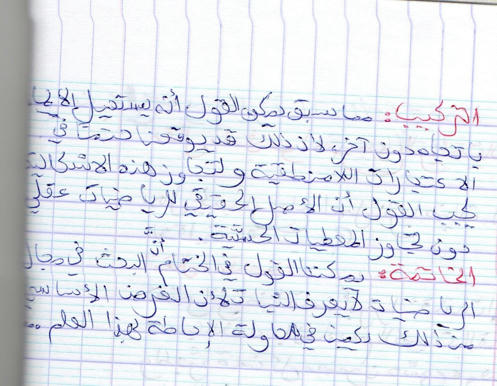 التركيب: مما سبق يمكن القول أنه يستحيل الأخذ
باتجاه دون آخر لأن ذلك قد يوقعنا حتما في
الاعتبارات اللامنطقية ولتجاوز هذه الاشكالية
يجب القول أن الأصل الحقيقي للرياضيات عقلي
دون تجاوز المعطيات الحسية.
الخاتمة: يمكننا القول في الختام أن البحث في مجال
الرياضيات لا يعرف الثبات لأن الغرض الأساسي
من ذلك يكمن في محاولة الإحاطة بهذا العلم ...